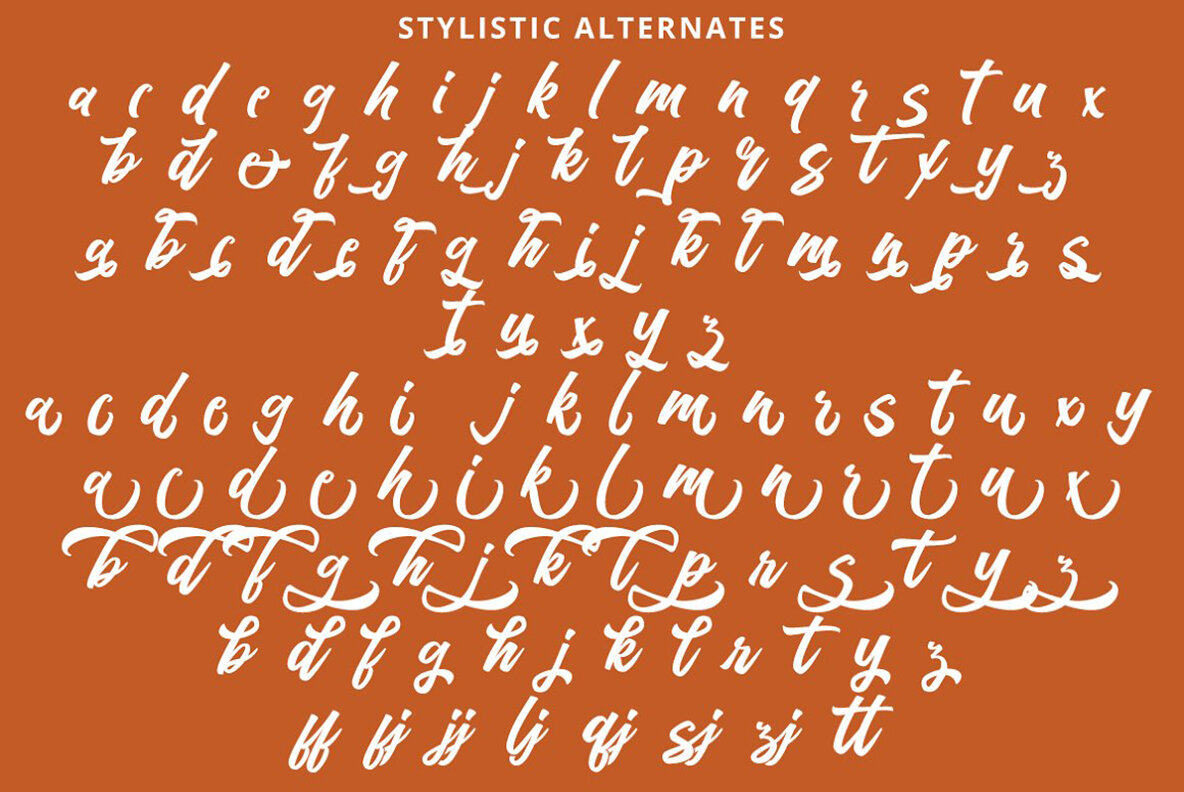 STYLISTIC ALTERNATES
a c d e g h i j k l m n q r s t u x
b d e f g h j k l p r s t x y z
a b c d e f g h i j k l m n p r s
t u x y z
a c d e g h i j k l m n r s t u x y
a c d e h i k l m n r t u x
b d f g h j k l p r s t y z
b d f g h j k l r t y z
ff fj jj lj qj sj zj tt